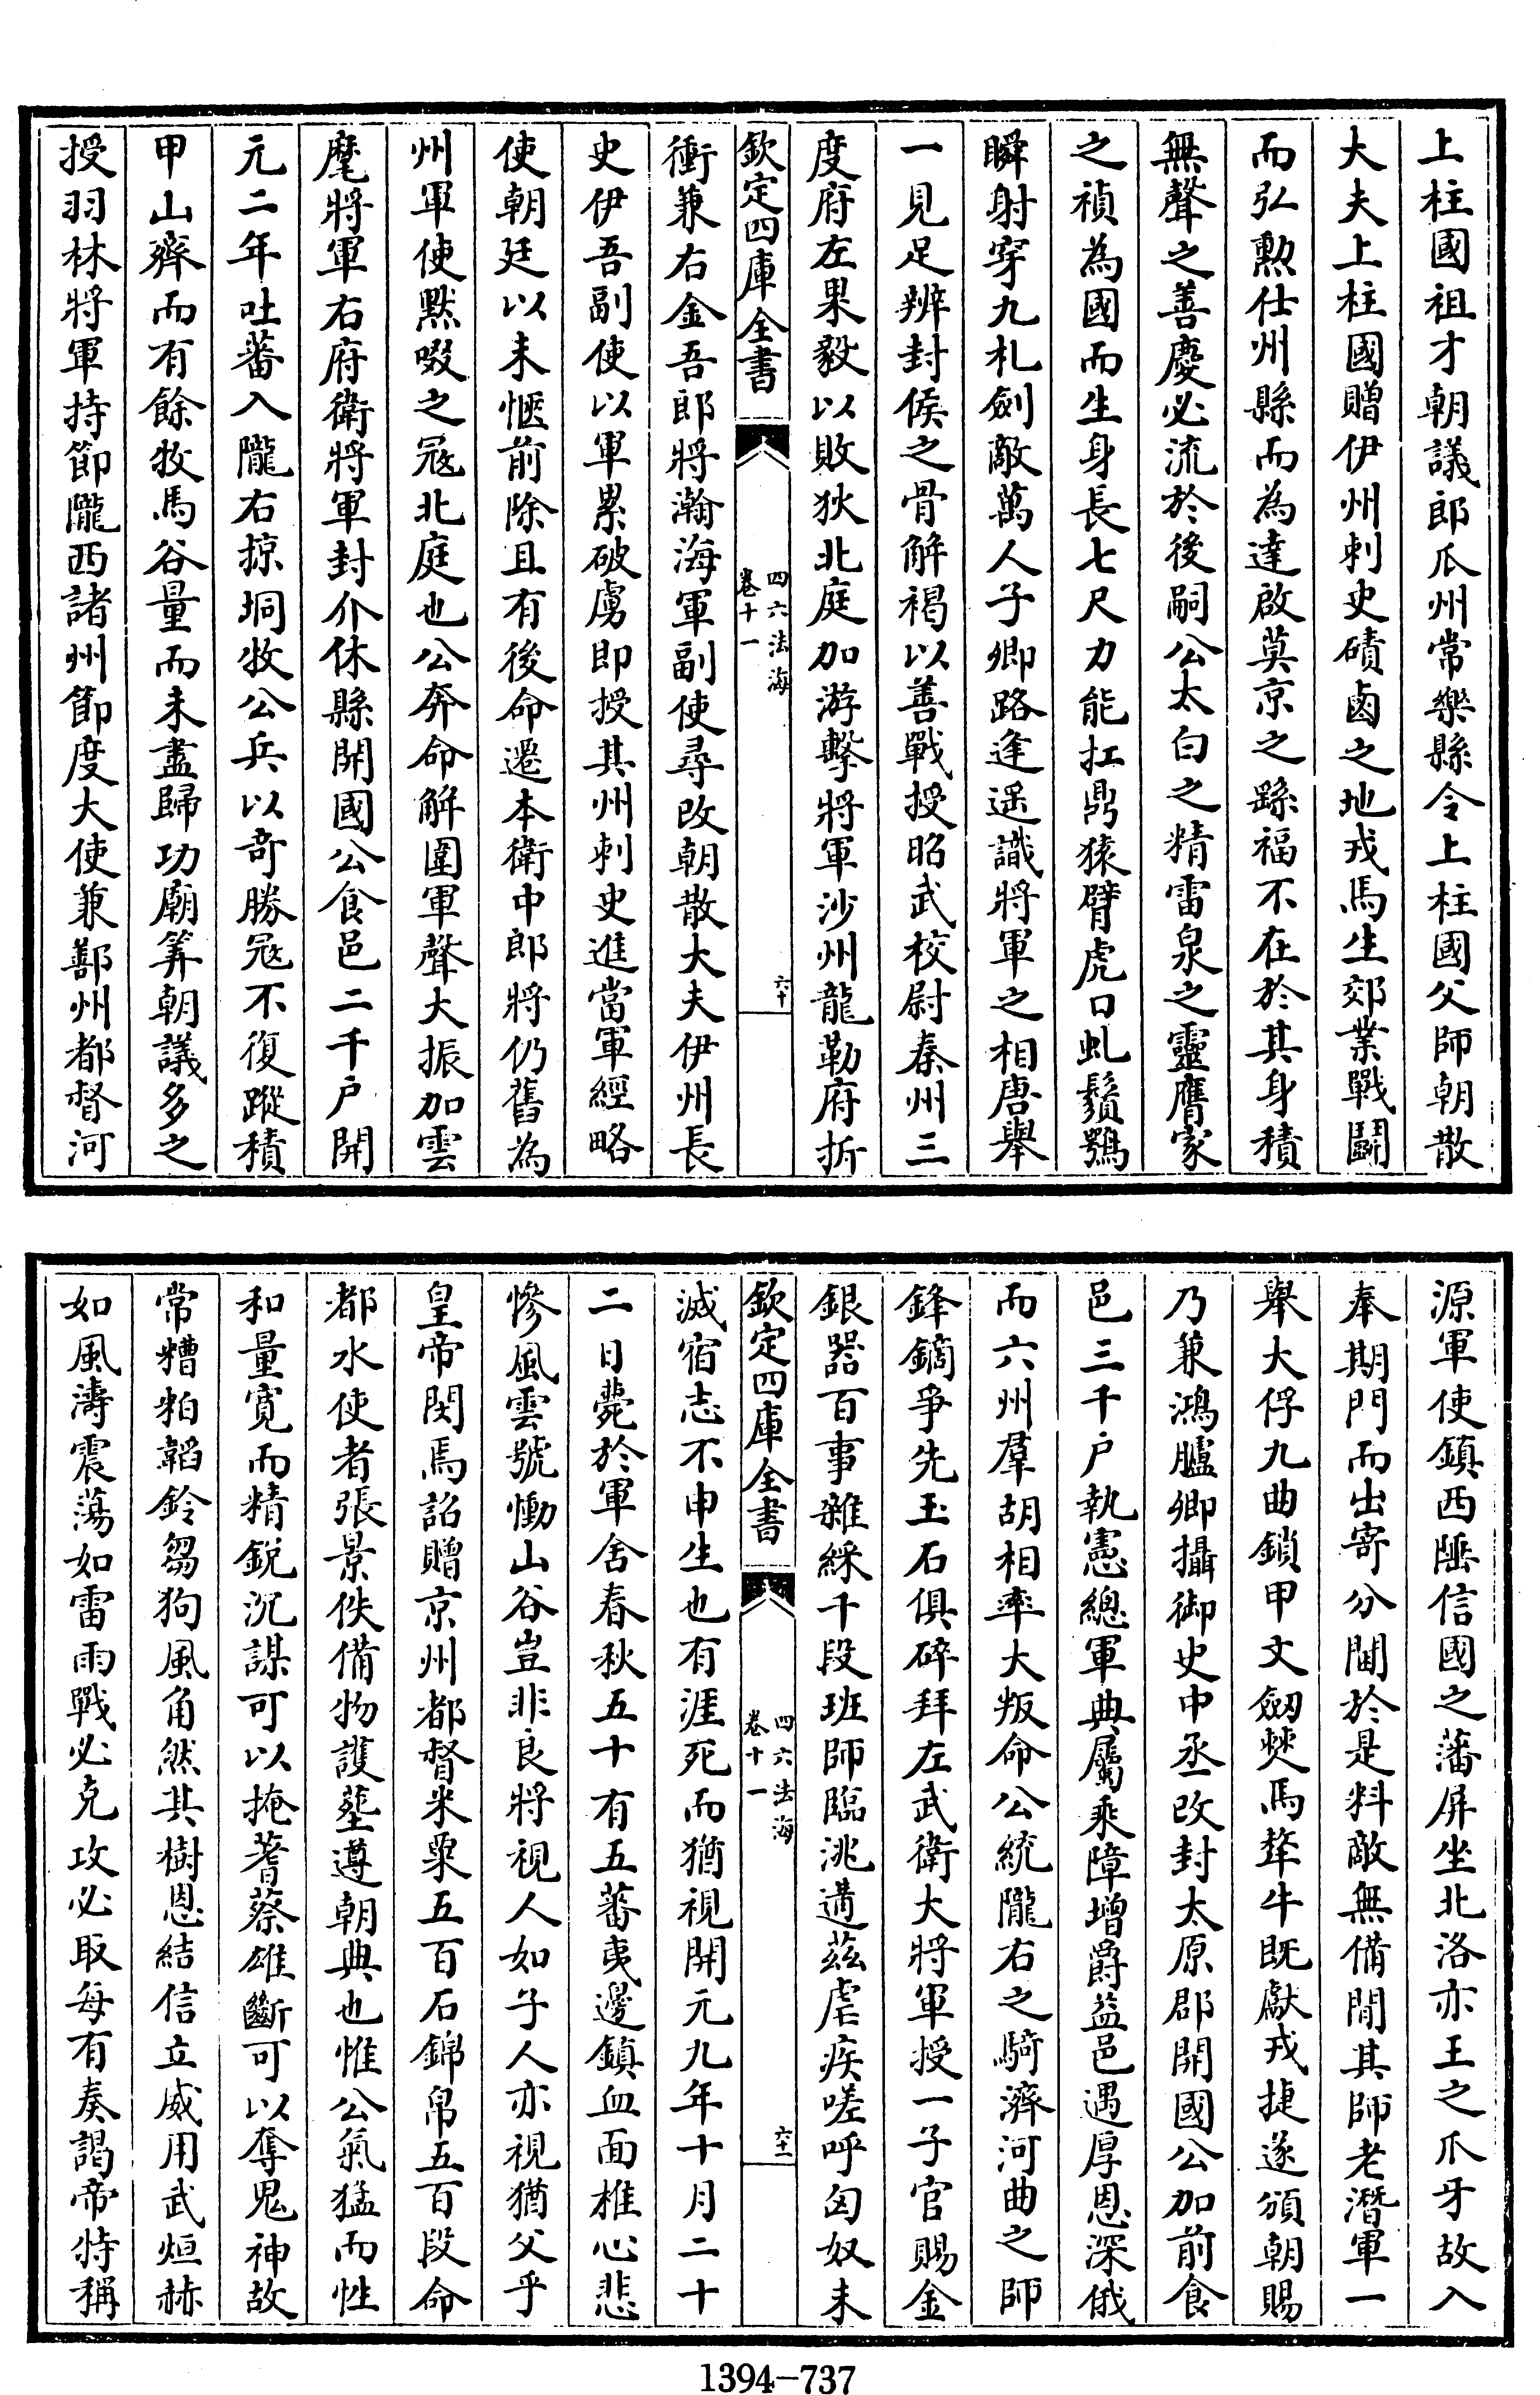 上柱國祖才朝議郎瓜州常樂縣令上柱國父師朝散
大夫上柱國贈伊州刺史磧鹵之地戎馬生郊業戰鬭
而弘勲仕州縣而為達啟莫京之繇福不在於其身積
無聲之善慶必流於後嗣公太白之精雷泉之靈膺家
之禎為國而生身長七尺力能扛鼎猿臂虎口虬鬚鶚
瞬射穿九札劍敵萬人子卿路逢遥識將軍之相唐舉
一見足辨封侯之骨解褐以善戰授昭武校尉秦州三
度府左果毅以敗狄北庭加游擊將軍沙州龍勒府折
欽定四庫全書
四六法海
卷十一
六十
衝兼右金吾郎將瀚海軍副使尋改朝散大夫伊州長
史伊吾副使以軍累破虜即授其州刺史進當軍經略
使朝廷以未愜前除且有後命遷本衛中郎將仍舊為
州軍使默啜之冦北庭也公奔命解圍軍聲大振加雲
麾將軍右府衛將軍封介休縣開國公食邑二千户開
元二年吐蕃入隴右掠坰牧公兵以竒勝冦不復蹤積
甲山齊而有餘牧馬谷量而未盡歸功廟筭朝議多之
授羽林將軍持節隴西諸州節度大使兼鄯州都督河
源軍使鎮西陲信國之藩屏坐北洛亦王之爪牙故入
奉期門而出寄分閫於是料敵無備閒其師老潛軍一
舉大俘九曲鎖甲文劔僰馬犛牛既獻戎捷遂頒朝賜
乃兼鴻臚卿攝御史中丞改封太原郡開國公加前食
邑三千户執憲總軍典屬乘障增爵益邑遇厚恩深俄
而六州羣胡相率大叛命公統隴右之騎濟河曲之師
鋒鏑爭先玉石俱碎拜左武衛大將軍授一子官賜金
銀器百事雜綵千段班師臨洮遘兹虐疾嗟呼匈奴未
欽定四庫全書
四六法海
卷十一
六十一
滅宿志不申生也有涯死而猶視開元九年十月二十
二日薨於軍舍春秋五十有五蕃夷邊鎮血面椎心悲
慘風雲號慟山谷豈非良將視人如子人亦視猶父乎
皇帝閔焉詔贈京州都督米粟五百石錦帛五百段命
都水使者張景佚備物護塟遵朝典也惟公氣猛而性
和量寛而精鋭沉謀可以掩蓍蔡雄斷可以奪鬼神故
常糟粕韜鈐芻狗風角然其樹恩結信立威用武烜赫
如風濤震蕩如雷雨戰必克攻必取每有奏謁帝特稱
1394-737